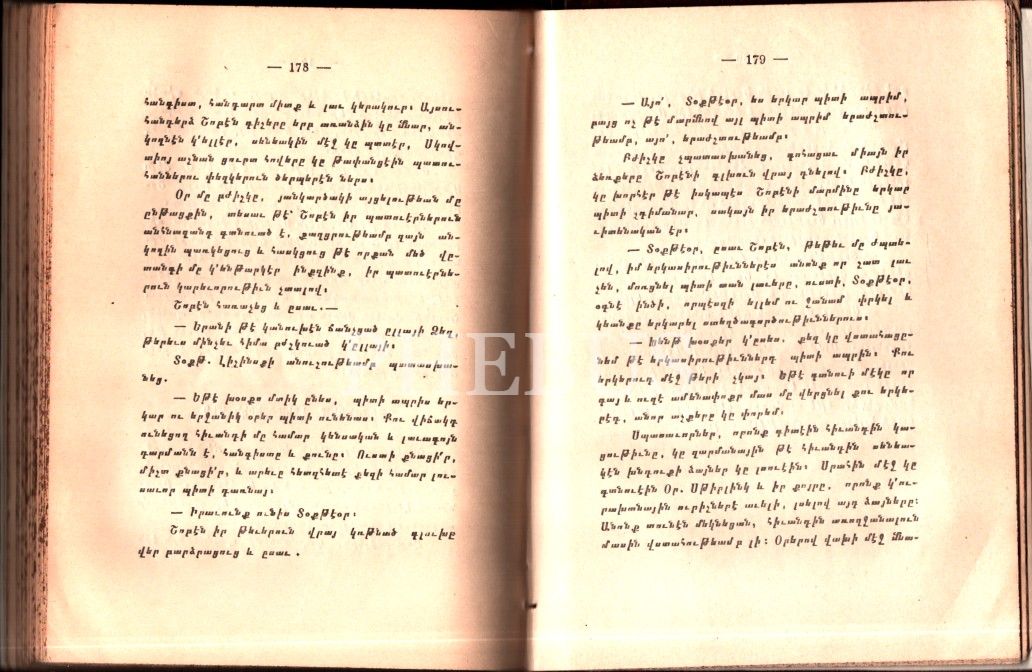 — 178 —
հանգիստ, հանդարտ միտք և լաւ կերակուր։ Այսու-
հանդերձ Շորէն գիշերը երբ առանձին կը մնար, ան-
կողնէն կ'ելլէր, սենեակին մէջ կը պտտէր, Սկով-
տիոյ աշնան ցուրտ հովերը կը թափանցէին պատու-
հաններու փեղկերուն ծերպերէն ներս։
Օր մը բժիշկը, յանկարծակի այցելութեան մը
ընթացքին, տեսաւ թէ՝ Շորէն իր պատուէրներուն
անհնազանդ գտնուած է, քաղցրութեամբ զայն ան-
կողին պառկեցուց և հասկցուց թէ որքան մեծ վը-
տանգի մը կ'ենթարկէր ինքզինք, իր պատուէրնե-
րուն կարեւորութիւն չտալով։
Շորէն հառաչեց և ըսաւ.—
— Երանի թէ կանուխէն ճանչցած ըլլայի Ձեզ,
թերեւս մինչեւ հիմա բժշկուած կ'ըլլայի։
Տօքթ. Լիշինսքի անուշութեամբ պատասխա-
նեց.
— Եթէ խօսքս մտիկ ընես, պիտի ապրիս եր-
կար ու երջանիկ օրեր պիտի ունենաս։ Քու վիճակդ
ունեցող հիւանդի մը համար կենսական և լաւագոյն
դարմանն է, հանգիստը և քունը։ Ուստի քնացի՛ր,
միշտ քնացի՛ր, և արեւը հետզհետէ քեզի համար լու-
սաւոր պիտի դառնայ։
— Իրաւունք ունիս Տօքթէօր։
Շորէն իր թեւերուն վրայ կոթնած գլուխը
վեր բարձրացուց և ըսաւ.
— 179 —
— Այո՛, Տօքթէօր, ես երկար պիտի ապրիմ,
բայց ոչ թէ մարմնով այլ պիտի ապրիմ երաժշտու-
թեամբ, այո՛, երաժշտութեամբ։
Բժիշկը չպատասխանեց, գոհացաւ միայն իր
ձեռքերը Շորէնի գլխուն վրայ դնելով։ Բժիշկը,
կը խորհէր թէ իսկապէս Շորէնի մարմինը երկար
պիտի չդիմանար, սակայն իր երաժշտութիւնը յա-
ւիտենական էր։
— Տօքթէօր, ըսաւ Շորէն, թեթեւ մը ժպտե-
լով, իմ երկասիրութիւններէս անոնք որ շատ լաւ
չեն, մոռցնել պիտի տան լաւերը, ուստի, Տօքթէօր,
օգնէ ինծի, որպէսզի ելլեմ ու ջանամ փրկել և
կեանքը երկարել ստեղծագործութիւններուս։
— Խենթ խօսքեր կ'ըսես. քեզ կը վստահացը-
նեմ թէ երկասիրութիւններդ պիտի ապրին։ Քու
երկերուդ մէջ թերի չկայ։ Եթէ գտնուի մէկը որ
գայ և ուզէ ամենափոքր մաս մը վերցնել քու երկե-
րէդ, անոր աչքերը կը փորեմ։
Սպասաւորներ, որոնք գիտէին հիւանդին կա-
ցութիւնը, կը զարմանային թէ հիւանդին սենեա-
կէն խնդուքի ձայներ կը լսուէին։ Սրահին մէջ կը
գտնուէին Օր. Սթիրլինկ և իր քոյրը, որոնք կ'ու-
րախանային ուրիշներէ աւելի, լսելով այդ ձայները։
Անոնք տունէն մեկնեցան, հիւանդին առողջանալուն
մասին վստահութեամբ լի։ Օրերով վախի մէջ մնա-